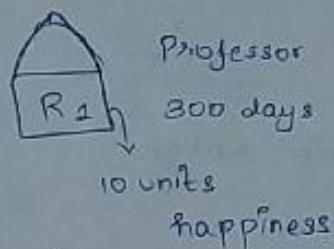 Professor
R1
300 days
10 units
happiness